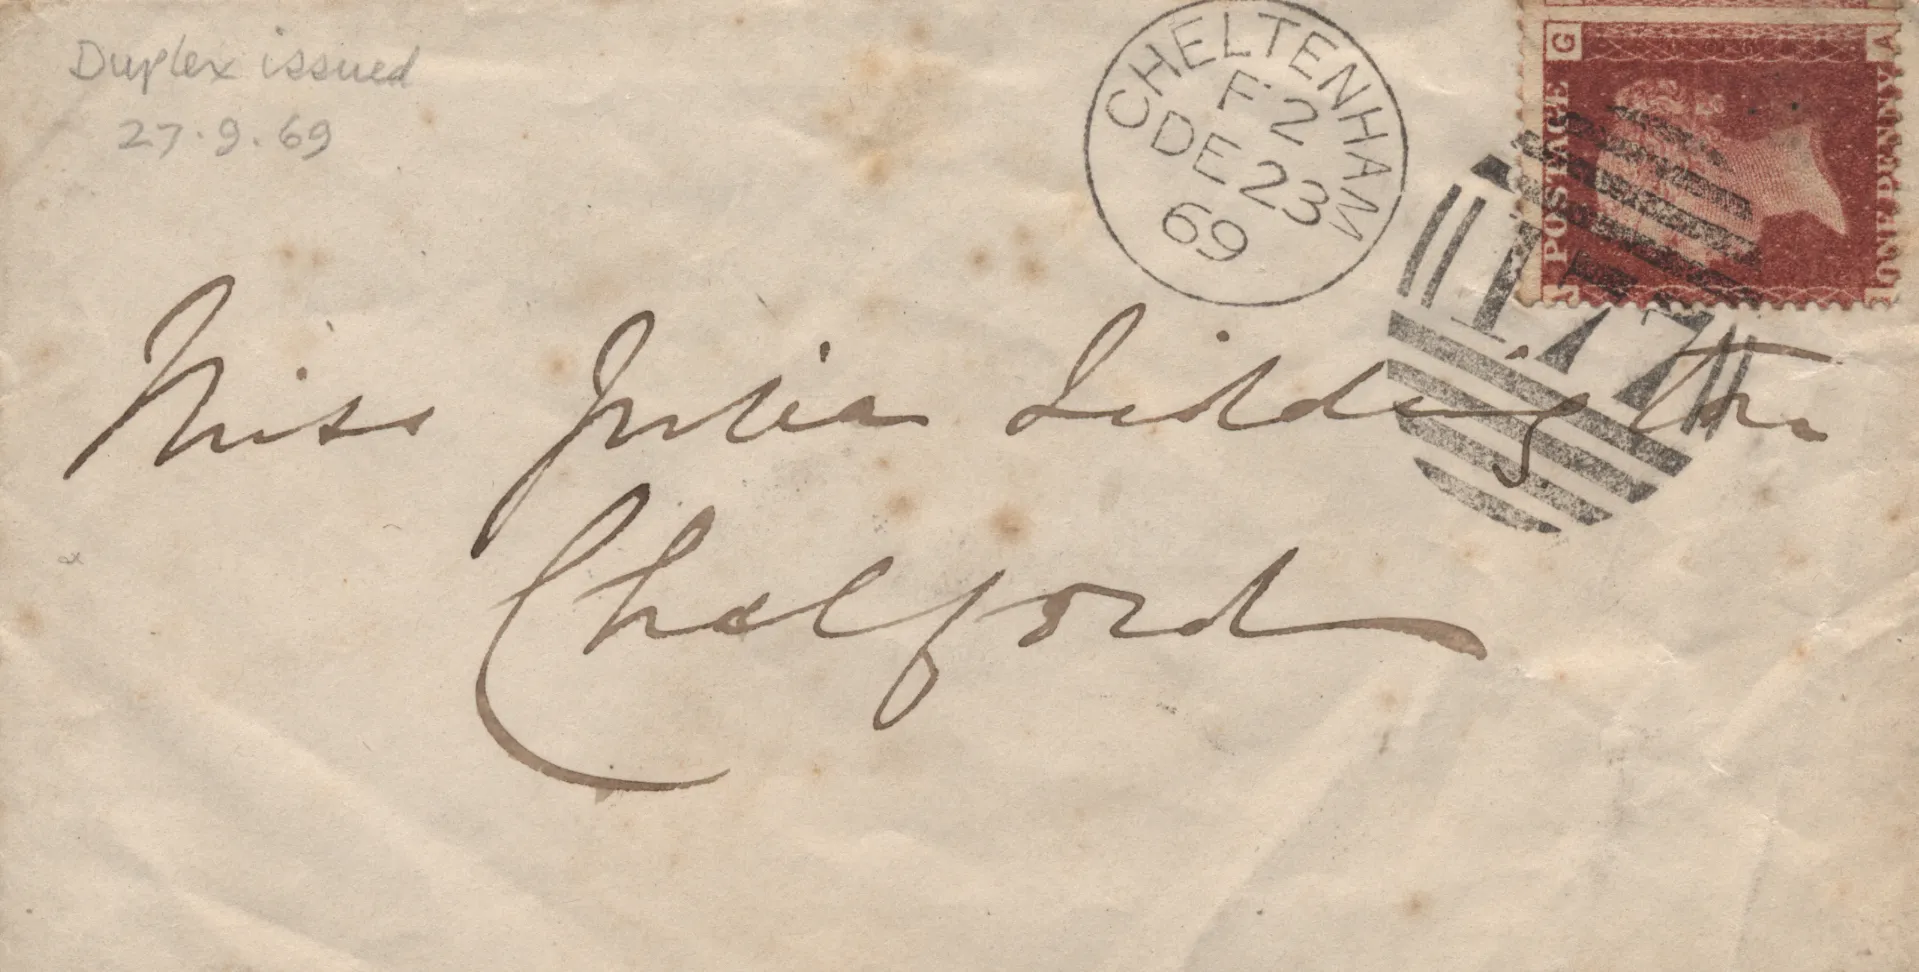 Duplex issued
27.9.69
CHELTENHAM
F2
DE 23
69
G A
POSTAGE
ONE PENNY
177
Miss Julia
Chalford